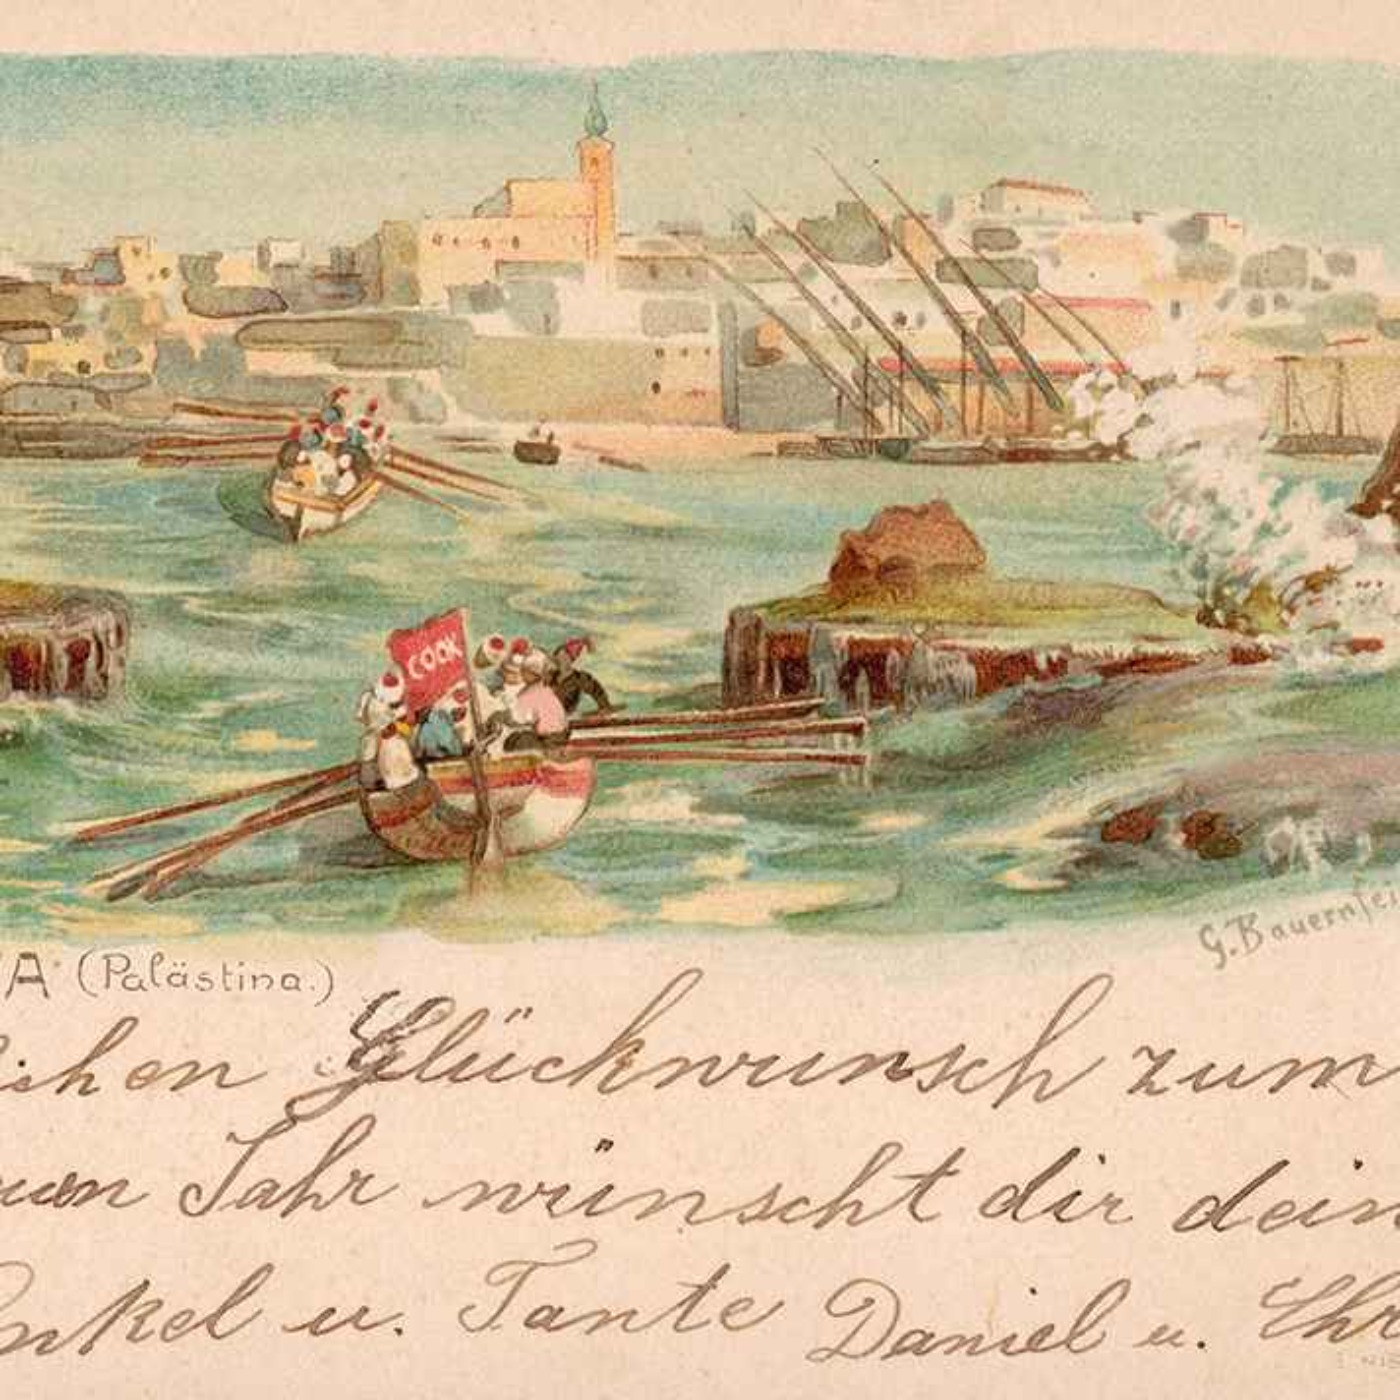 COOK
G. Bauernfei
A (Palästina.)
lichen Glückwunsch zum
euen Jahr wünscht dir dein
Onkel u. Tante Daniel u. Chr